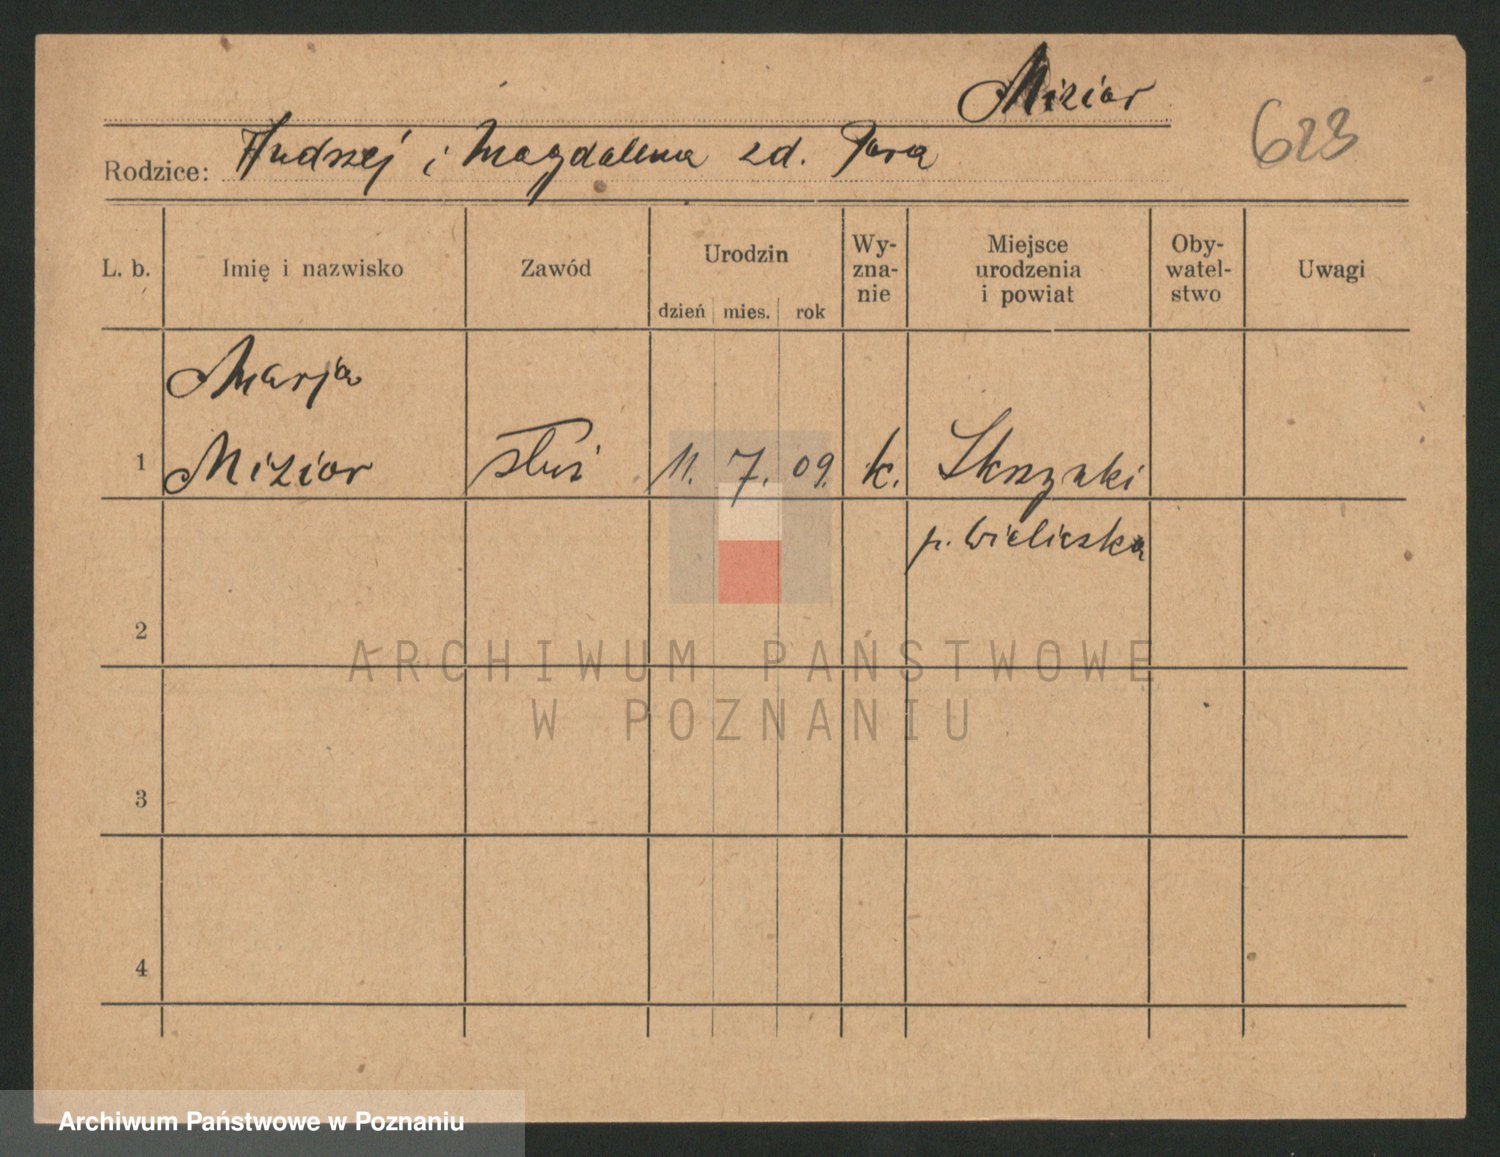 Mizior
623
Rodzice: Andrzej i Magdalena zd. Para
L. b. Imię i nazwisko Zawód Urodzin dzień mies. rok Wy-zna-nie Miejsce urodzenia i powiat Oby-watel-stwo Uwagi
Marja
1 Mizior służ 11. 7. 09. k.
p. Wieliczka
2
3
4
ARCHIWUM PAŃSTWOWE
W POZNANIU
Archiwum Państwowe w Poznaniu